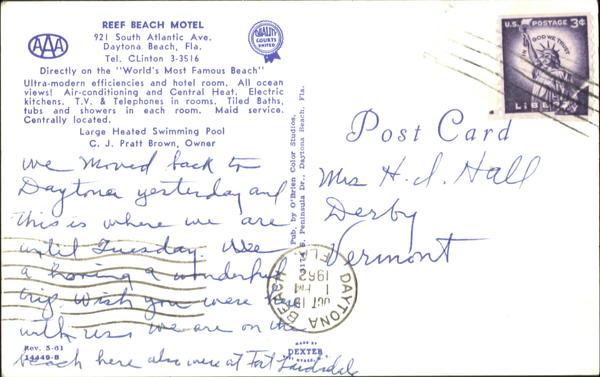 REEF BEACH MOTEL
921 South Atlantic Ave.
Daytona Beach, Fla.
Tel. CLinton 3-3516
Directly on the "World's Most Famous Beach"
Ultra-modern efficiencies and hotel room. All ocean
views! Air-conditioning and Central Heat. Electric
kitchens. T.V. & Telephones in rooms. Tiled Baths,
tubs and showers in each room. Maid service.
Centrally located.
Large Heated Swimming Pool
C. J. Pratt Brown, Owner
AAA
QUALITY
COURTS
UNITED
We moved back to
Daytona yesterday and
this is where we are
until Tuesday. We
a having a wonderful
trip. Wish you were here
with us we are on the
beach here also were at Fort
Rev. 5-61
14449-B
Pub. by O'Brien Color Studios,
S. Peninsula Dr., Daytona Beach, Fla.
MADE BY
DEXTER
U.S. POSTAGE 3¢
IN GOD WE TRUST
LIBERTY
Post Card
Mrs H. I. Hall
Derby
Vermont
DAYTONA BEACH
FLA.
OCT
1 PM
1962